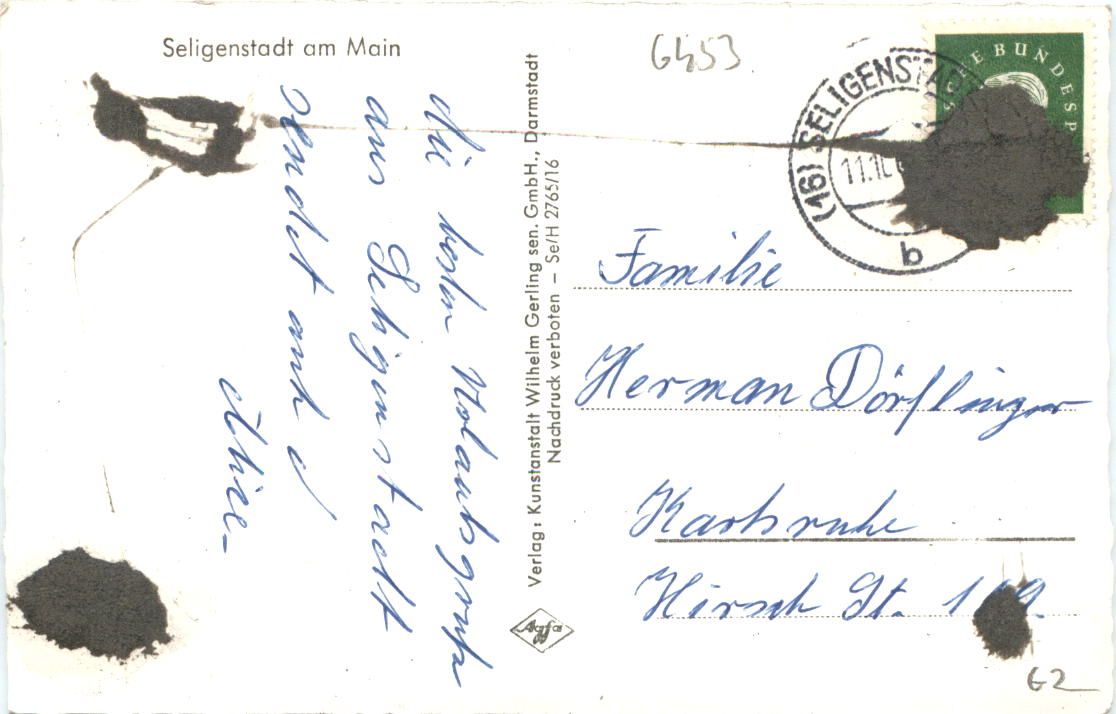 Seligenstadt am Main
6453
die besten Uolaubsgrüße
aus Seligenstadt
sendet euch
Verlag: Kunstanstalt Wilhelm Gerling sen. GmbH., Darmstadt
Nachdruck verboten – Se/H 2765/16
Agfa
(16) SELIGENSTADT
11.10
b
CHE BUNDESP
Familie
Herman Dörflinger
Karlsruhe
Hirsch St.
62